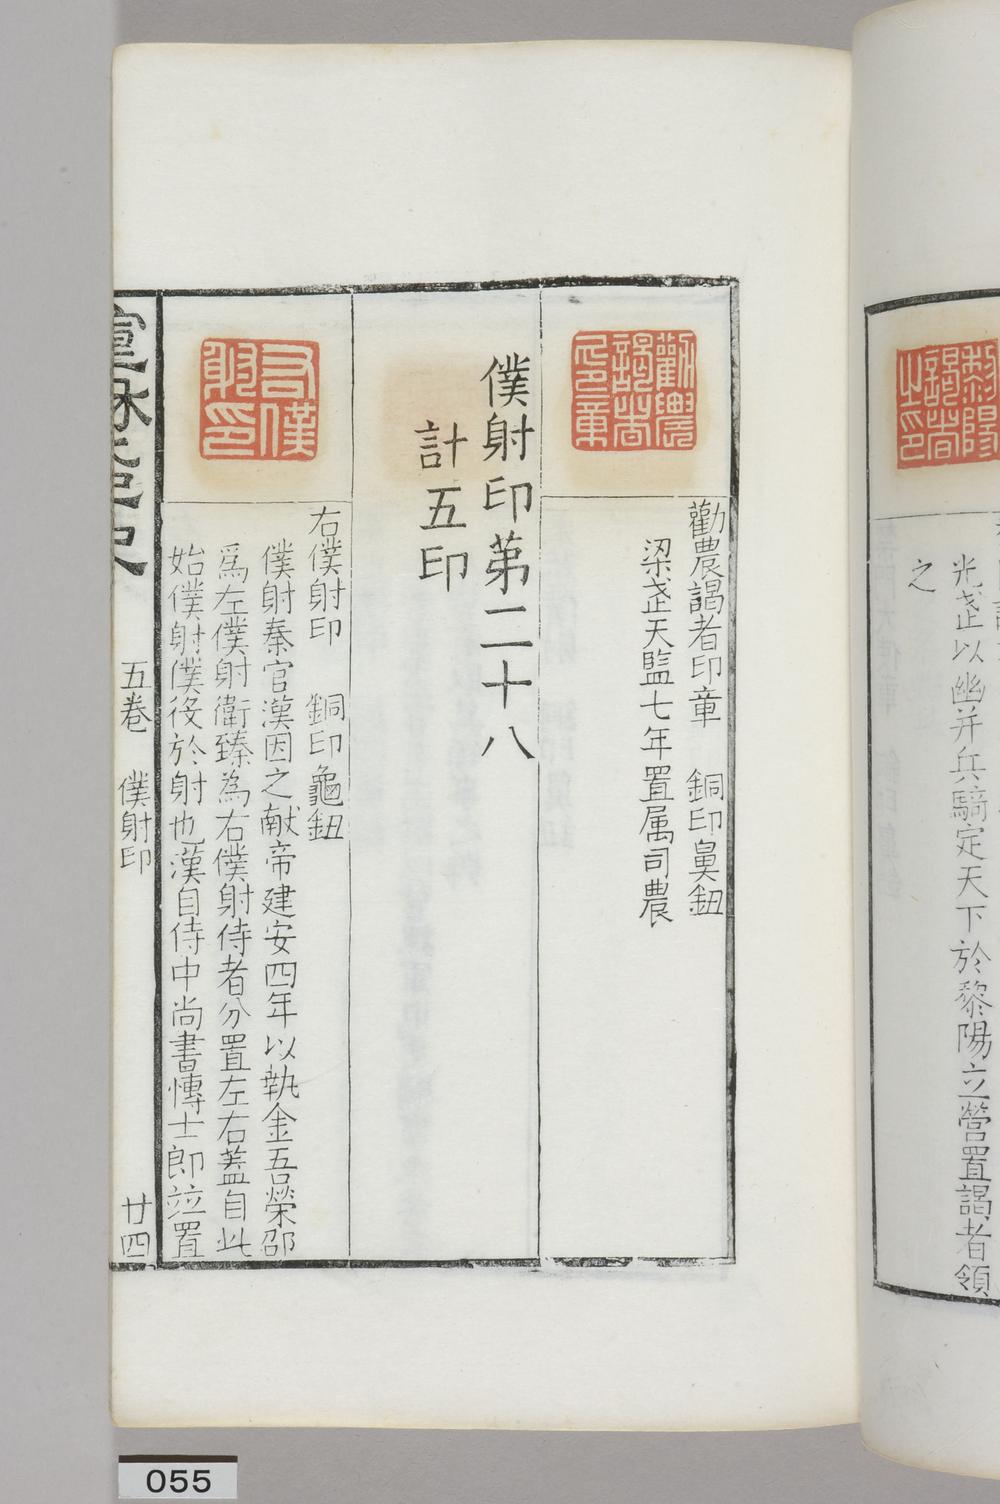 光武以幽并兵騎定天下於黎陽立營置謁者領
之
勸農謁者印章
勸農謁者印章　銅印鼻鈕
梁武天監七年置属司農
僕射印第二十八
計五印
右僕射印
右僕射印　銅印龜鈕
僕射秦官漢因之献帝建安四年以執金吾榮邵
為左僕射衛臻為右僕射侍者分置左右蓋自此
始僕射僕役於射也漢自侍中尚書愽士郎竝置
五卷　僕射印　廿四
055